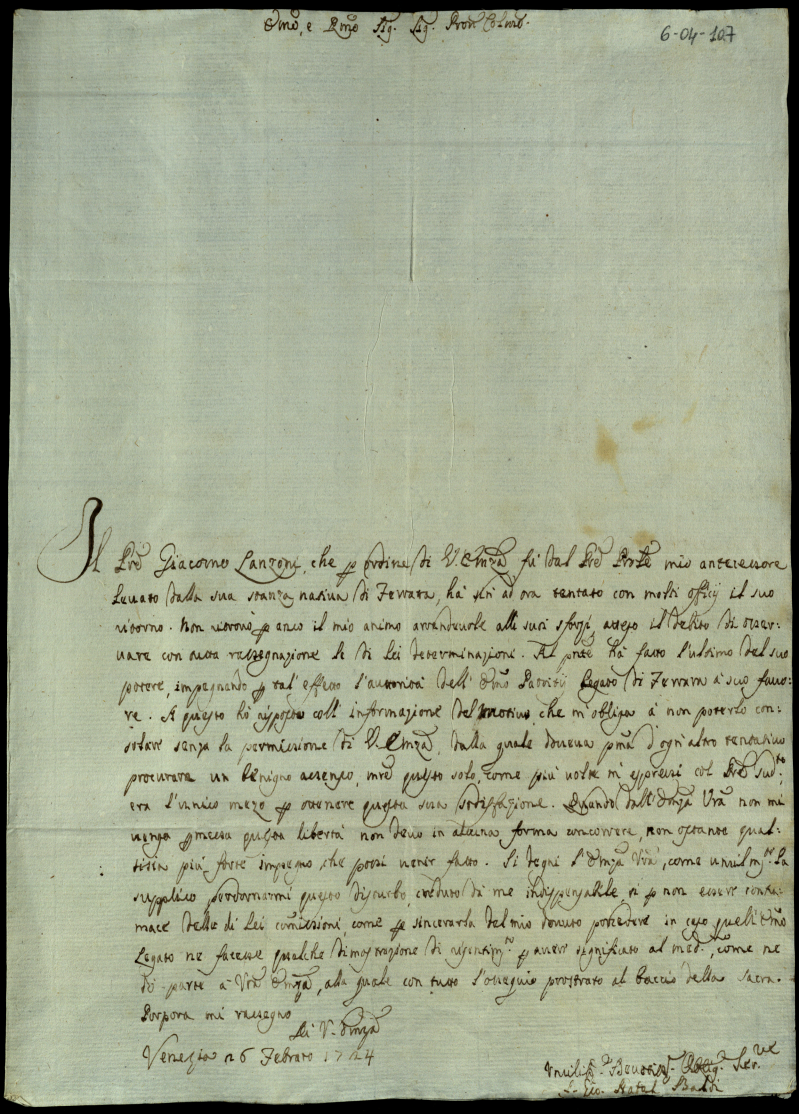 Emo, e Rmo Sig. Sig. Pron Colmo.
6-04-107
Il Pre Giacomo Lanzoni, che p ordine di V. Emza fù dal Pre Prle mio antecessore
Levato dalla sua stanza nativa di Ferrara, hà sin ad ora tentato con molti officij il suo
ritorno. Non ritrovò p anco il mio animo arrendevole alli suoi sforzi, atteso il debito di osser-
vare con tutta rassegnazione le di Lei determinazioni. Al pnte hà fatto l'ultimo del suo
potere, impegnando p tal' effetto l'autorità dell' Emo Patritij Legato di Ferrara à suo favo-
re. A questo hò risposto coll' informazione del motivo che m' obliga à non poterlo con-
solare senza la permissione di V. Emza, dalla quale doveva pma d'ogn' altro tentativo
procurare un benigno assenso, mre questo solo, come più volte mi espressi col Pre sudto,
era l'unico mezo p ottenere questa sua sodisfazione. Quando dall' Emza Vra non mi
venga pmessa questa libertà non devo in alcuna forma concorrere, non ostante qual-
sisia più forte impegno, che possi venir fatto. Si degni l' Emza Vra, come umilmte La
supplico perdonarmi questo disturbo, creduto da me indispensabile, sì p non essere contu-
mace delle di Lei comissioni, come p sincerarla del mio dovuto procedere in caso quell' Emo
Legato ne facesse qualche dimostrazione di risentimto p aver significato al med., come ne
dò parte à Vra Emza, alla quale con tutto l'ossequio prostrato al baccio della Sacra
Porpora mi rassegno
Di V. Emza
Venezia 26 Febraro 1724
Umilis. Devotis. Obblig. Ser.re
F. Gio. Batta Baldi